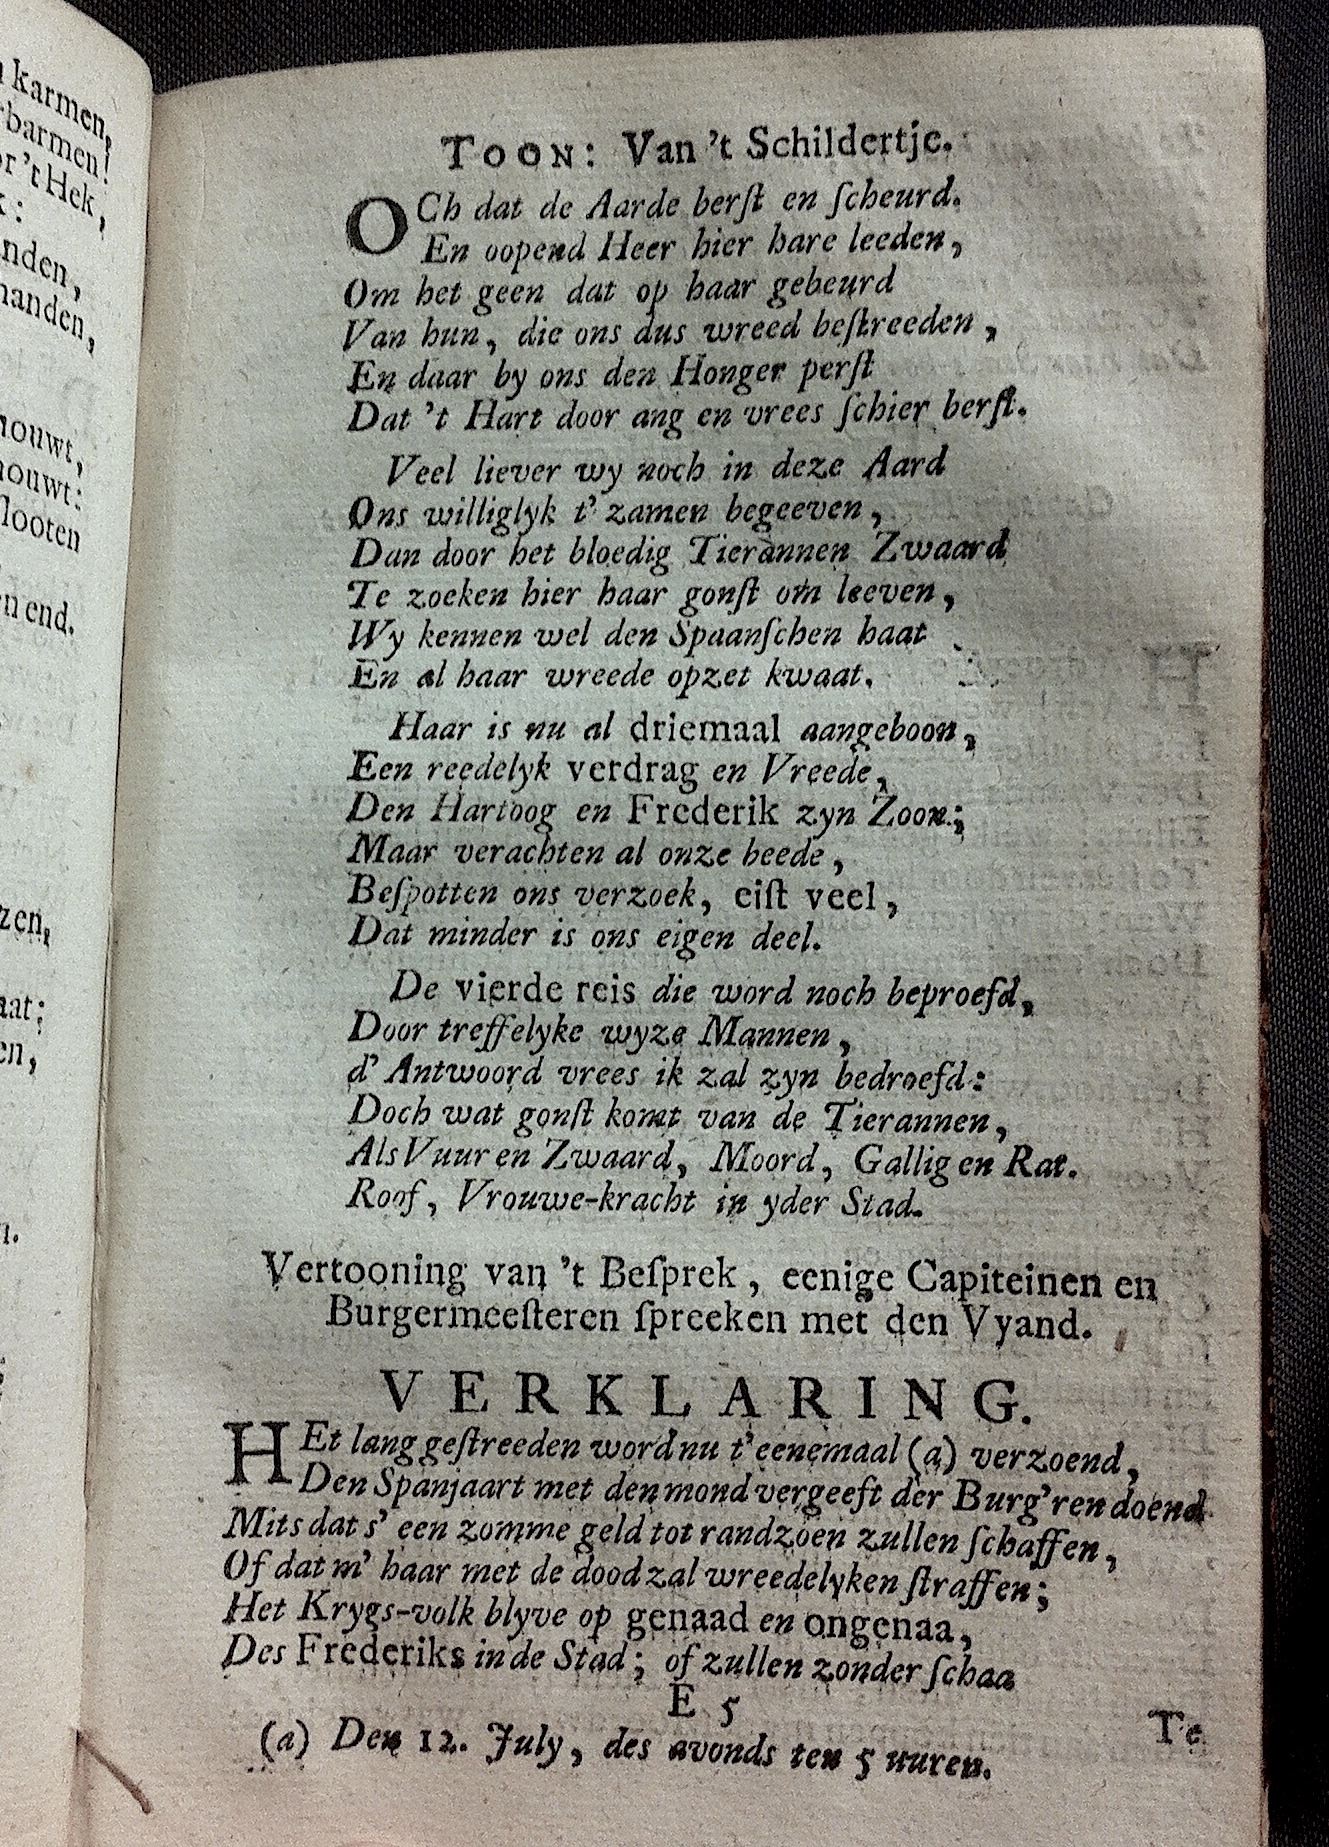 karmen,
rbarmen!
or 't Hek,
k:
nden,
handen,
houwt,
nouwt:
slooten
n end.
zen,
aat;
en,
n.
TOON: Van 't Schildertje.
OCh dat de Aarde berſt en ſcheurd.
En oopend Heer hier hare leeden,
Om het geen dat op haar gebeurd
Van hun, die ons dus wreed beſtreeden,
En daar by ons den Honger perſt
Dat 't Hart door ang en vrees ſchier berſt.
Veel liever wy noch in deze Aard
Ons williglyk t' zamen begeeven,
Dan door het bloedig Tierannen Zwaard
Te zoeken hier haar gonſt om leeven,
Wy kennen wel den Spaanſchen haat
En al haar wreede opzet kwaat.
Haar is nu al driemaal aangeboon,
Een reedelyk verdrag en Vreede,
Den Hartoog en Frederik zyn Zoon;
Maar verachten al onze beede,
Beſpotten ons verzoek, eiſt veel,
Dat minder is ons eigen deel.
De vierde reis die word noch beproefd,
Door treffelyke wyze Mannen,
d' Antwoord vrees ik zal zyn bedroefd:
Doch wat gonſt komt van de Tierannen,
Als Vuur en Zwaard, Moord, Gallig en Rat.
Roof, Vrouwe-kracht in yder Stad.
Vertooning van 't Beſprek, eenige Capiteinen en
Burgermeeſteren ſpreeken met den Vyand.
VERKLARING.
HEt lang geſtreeden word nu t' eenemaal (a) verzoend,
Den Spanjaart met den mond vergeeft der Burg'ren doend
Mits dat s' een zomme geld tot randzoen zullen ſchaffen,
Of dat m' haar met de dood zal wreedelyken ſtraffen;
Het Krygs-volk blyve op genaad en ongenaa,
Des Frederiks in de Stad; of zullen zonder ſchaa
E 5
Te
(a) Den 12. July, des avonds ten 5 uuren.